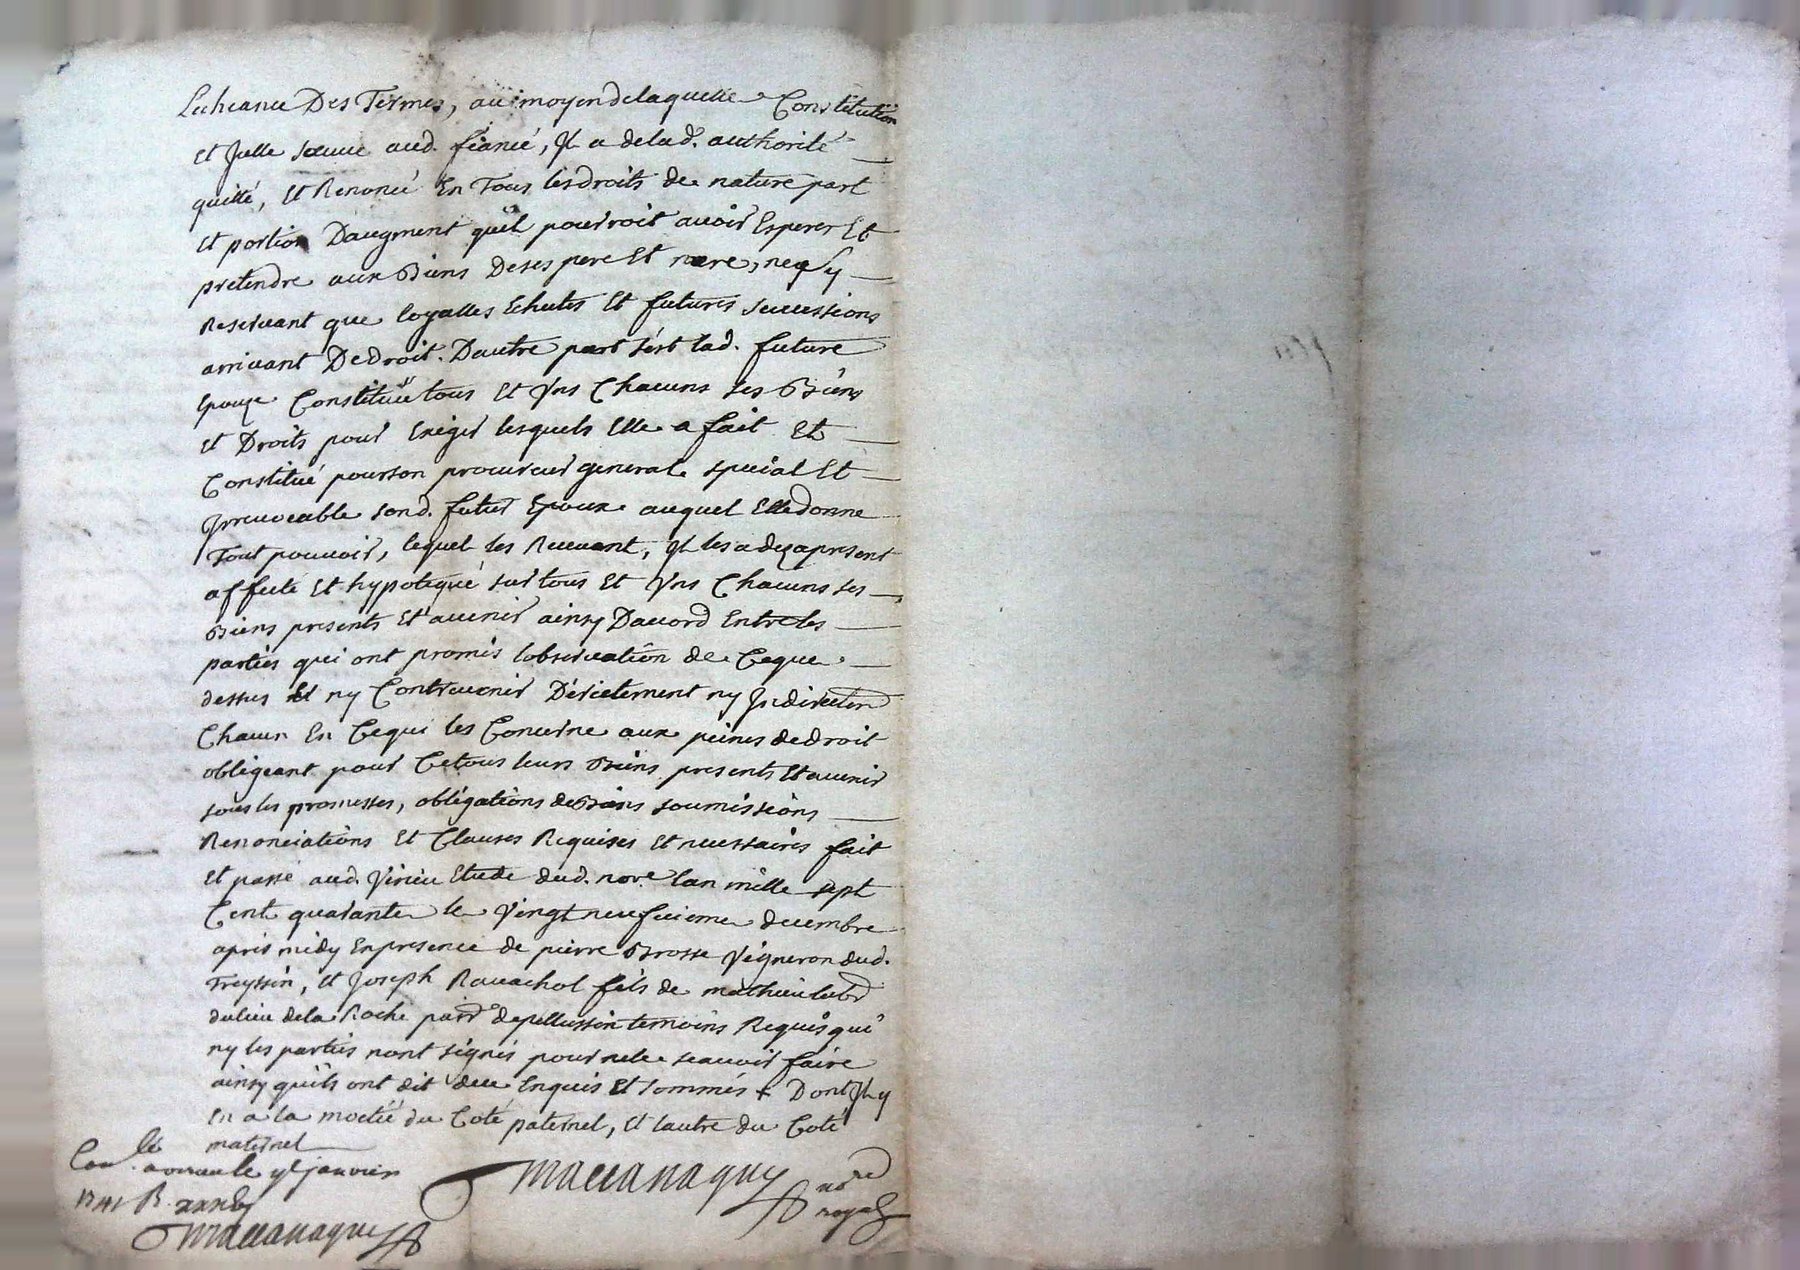 Lecheance Des Termes, au moyen delaquelle Constitution
Et Jcelle sauue aud. fiancé, Jl a delad. authorité
quitté, Et Renoncé En Tous les droits de nature part
Et portion Daugment quil pourroit auoir Esperer Et
pretendre aux Biens Deses pere Et mere, ne sy
Reseruant que loyalles Echutes Et futures successions
arriuant De droit. Dautre part sest lad. future
Epouze Constitüé tous Et Vns Chacuns ses Biens
Et Droits pour Exiger lesquels Elle a fait Et
Constitué pourson procureur general special Et
Jrreuocable sond. futur Epoux auquel Elle donne
Tout pouuoir, lequel les Receuant, Jl les a dezapresent
affecté Et hypotequé sur tous Et Vns Chacuns ses
Biens presents Et auenir ainsy Dacord Entre les
parties qui ont promis lobseruation de Ceque
dessus Et ny Contreuenir Directement ny Jndirectem
Chacun En Cequi les Concerne aux peines de droit
obligeant pour Ce tous leurs Biens presents Et auenir
sous les promesses, obligations de Biens soumissions
Renonciations Et Clauses Requises Et necessaires fait
Et passé aud. Virieu Etude dud. nore. lan mille sept
Cent quarante le Vingt neufuieme decembre
apres midy En presence de pierre Brosse Vigneron dud.
Treyssin, Et Joseph Rauachol fils de mathieu labr
du lieu de la Roche parr depellussin temoins Requis qui
ny les parties nont signés pour ne le scauoir faire
ainsy quils ont dit deu Enquis Et sommés + Dont Jl y
En a la moctié du Coté paternel, Et lautre du Coté
maternel
Con.lé a le janvier
1741 R.
maccanaguy nore royal
maccanaguy